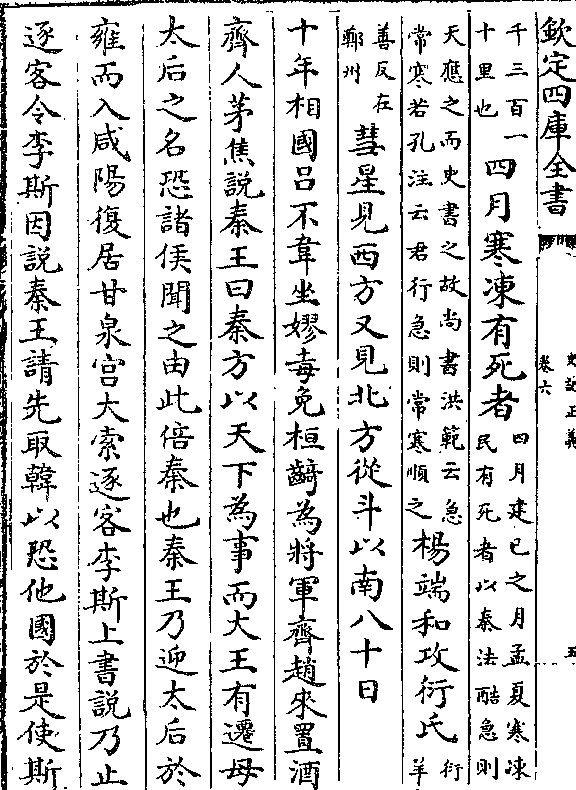 欽定四庫全書
史記正義
卷六
五
千三百一
十里也
四月寒凍有死者
四月建巳之月孟夏寒凍
民有死者以秦法酷急則
天應之而史書之故尚書洪範云急
常寒若孔注云君行急則常寒順之
楊端和攻衍氏
衍
羊
善反在
鄭州
彗星見西方又見北方從斗以南八十日
十年相國呂不韋坐嫪毐免桓齮為將軍齊趙來置酒
齊人茅焦說秦王曰秦方以天下為事而大王有遷母
太后之名恐諸侯聞之由此倍秦也秦王乃迎太后於
雍而入咸陽復居甘泉宫大索逐客李斯上書說乃止
逐客令李斯因說秦王請先取韓以恐他國於是使斯